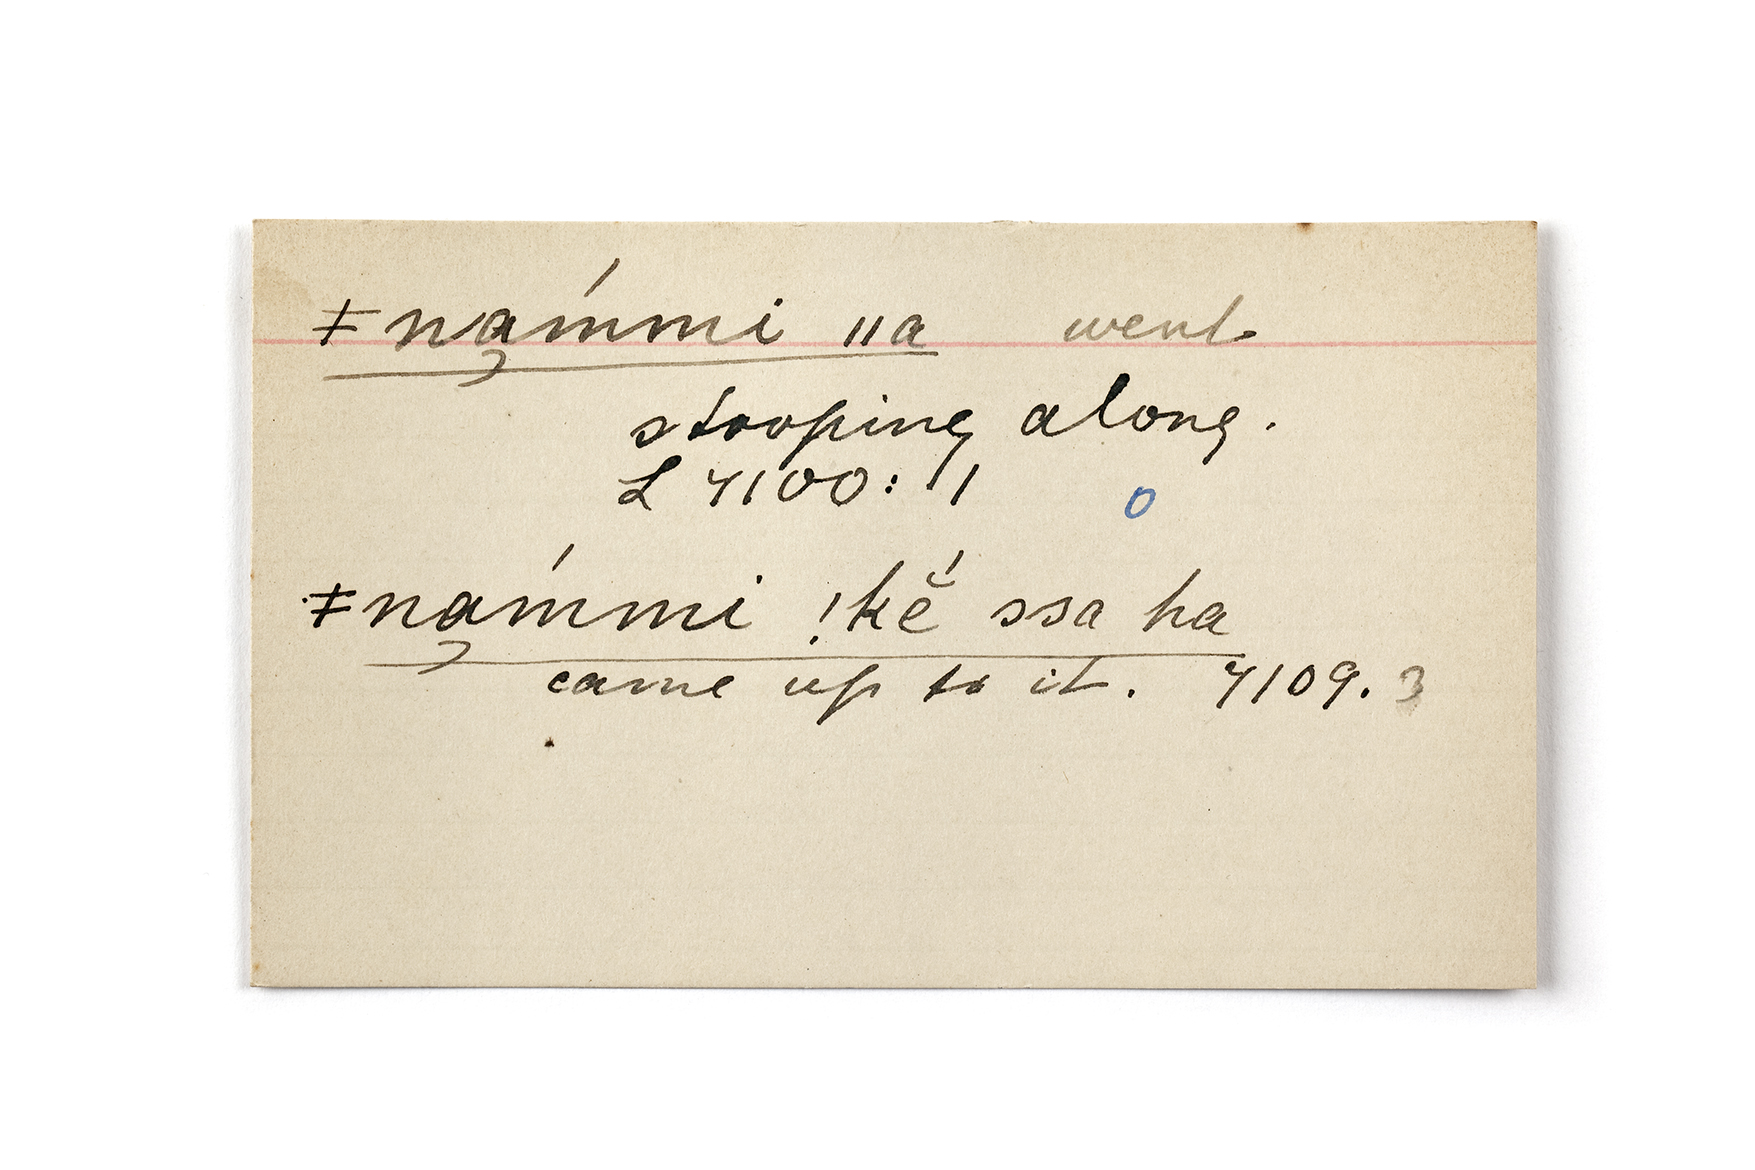 ǂną́mmi ǁa went
stooping along.
L 7100: 11
0
ǂną́mmi !kĕ́ ssa ha
came up to it. 7109. 3